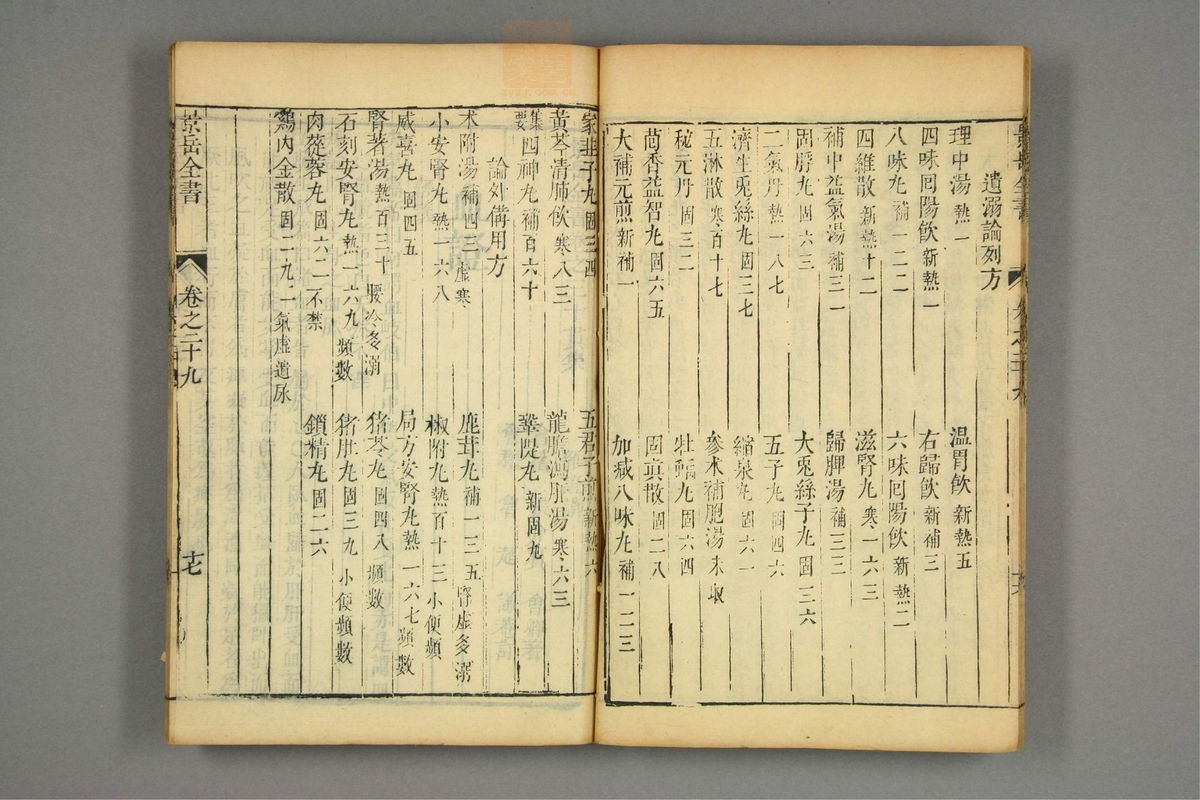 遺溺論列方
理中湯 熱一
溫胃飲 新熱五
四味回陽飲 新熱一
右歸飲 新補三
八味丸 補一二二
六味回陽飲 新熱二
四維散 新熱十二
滋腎丸 寒一六三
補中益氣湯 補三一
歸脾湯 補三三
固脬丸 固六三
大兎絲子丸 固三六
二氣丹 熱一八七
五子丸 固四六
濟生兎絲丸 固三七
縮泉丸 固六一
五淋散 寒百十七
參朮補胞湯 未收
秘元丹 固三二
牡蠣丸 固六四
茴香益智丸 固六五
固真散 固二八
大補元煎 新補一
加減八味丸 補一二三
家韭子丸 固三四
五君子煎 新熱六
黃芩清肺飲 寒八三
龍膽瀉肝湯 寒六三
集要四神丸 補百六十
鞏隄丸 新固九
論外備用方
朮附湯 補四三 虛寒
鹿茸丸 補一三五 腎虛多溺
小安腎丸 熱一六八
椒附丸 熱百十三 小便頻
威喜丸 固四五
局方安腎丸 熱一六七 頻數
腎著湯 熱百三十 腰冷多溺
猪苓丸 固四八 頻數
石刻安腎丸 熱一六九 頻數
猪肚丸 固三九 小便頻數
肉蓯蓉丸 固六二 不禁
鎖精丸 固二六
鷄內金散 固二九 氣虛遺尿
景岳全書
卷之二十九
十七